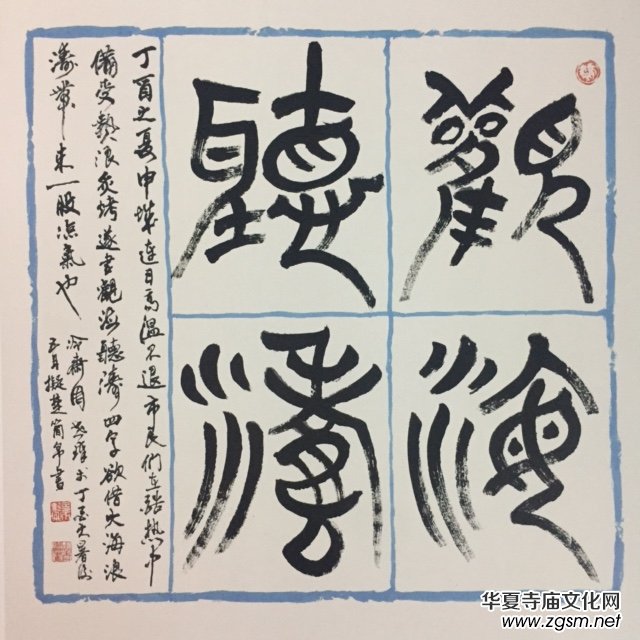 觀海
聽濤
丁酉之夏申城連日高溫不退市民們在酷熱中
備受熱浪炙烤遂書觀海聽濤四字欲借大海浪
濤帶來一股涼氣也
冷齋周 於丁酉大暑後
五日擬楚簡帛書
华夏寺庙文化网
www.zgsm.net